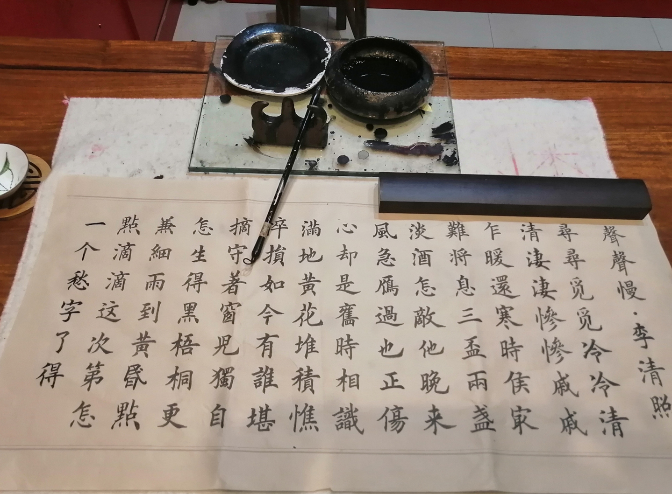 聲聲慢·李清照
尋尋觅觅冷冷清
清淒淒慘慘戚戚
乍暖還寒時侯㝡
難將息三盃兩盞
淡酒怎敵他晚来
風急鴈過也正傷
心却是舊時相識
滿地黃花堆積憔
悴損如今有誰堪
摘守著窗兒獨自
怎生得黑梧桐更
兼細雨到黃昏點
點滴滴这次第怎
一个愁字了得